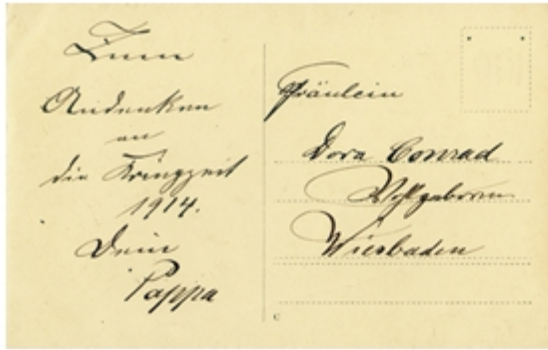 Zum
Andenken
an
die Kriegzeit
1914.
Dein
Pappa
Fräulein
Dora Conrad
Wohlgeboren
Wiesbaden
C